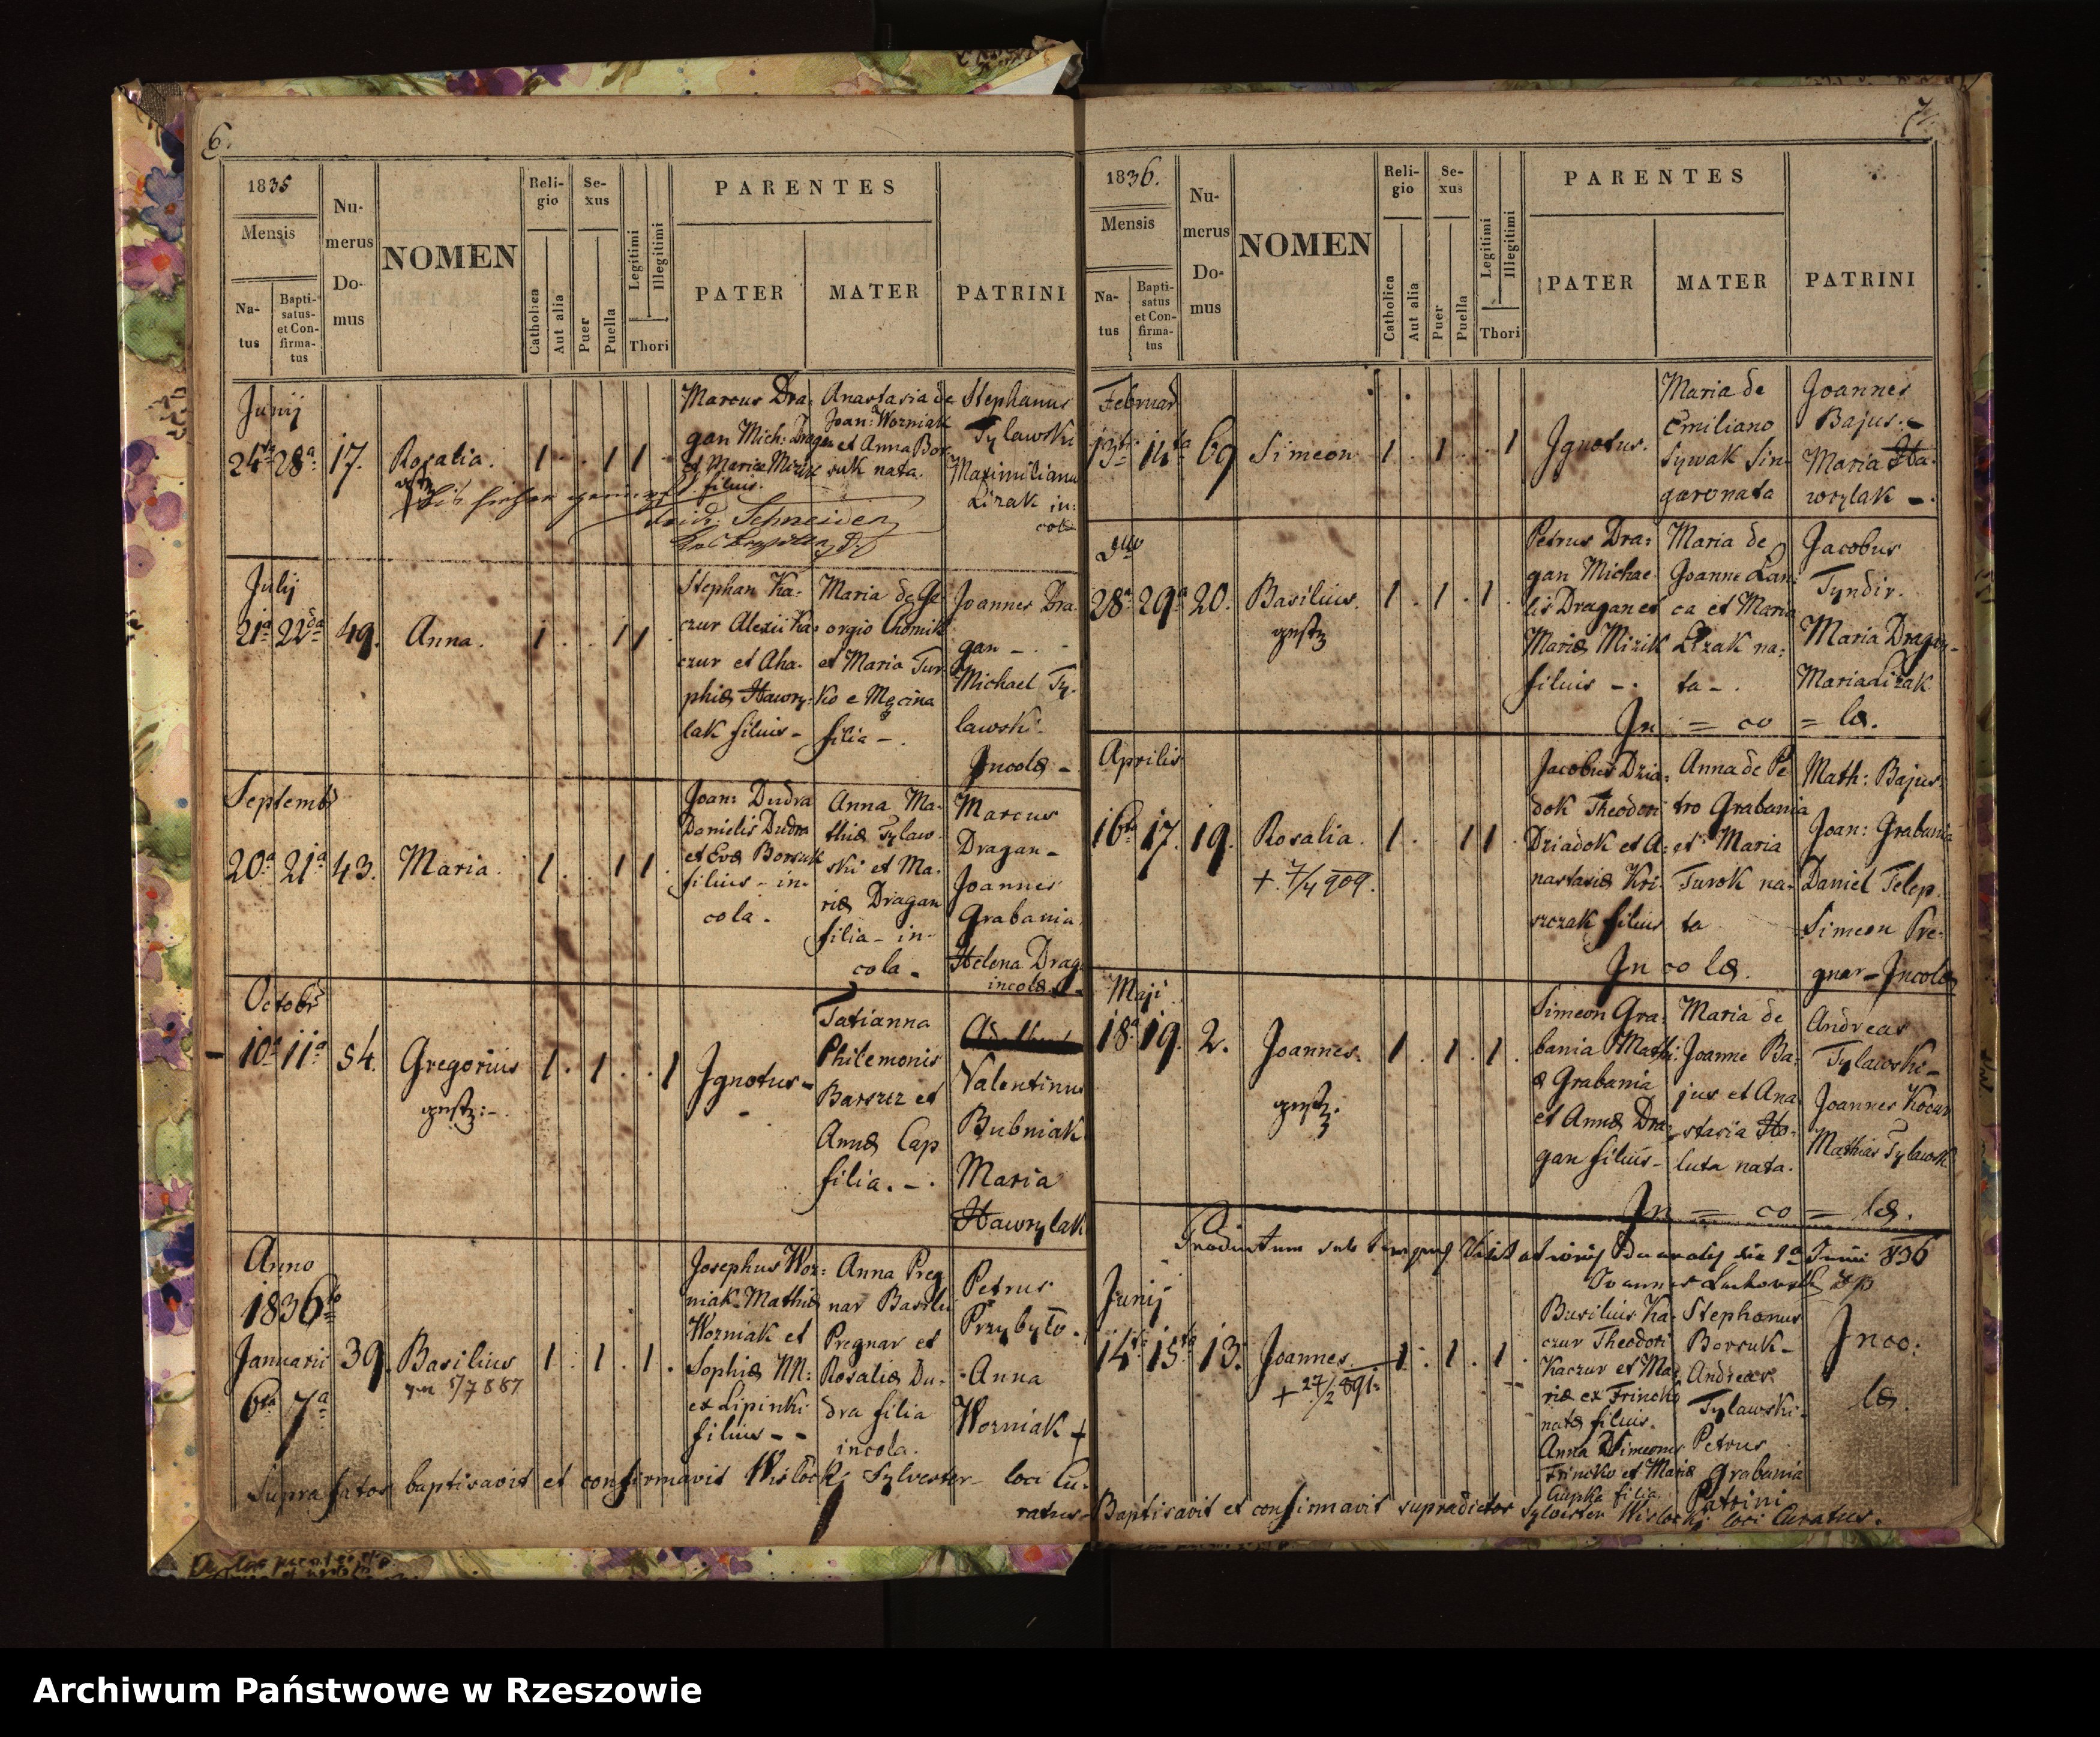 6.
1835
Mensis
Na-
tus
Bapti-
satus-
et Con-
firma-
tus
Nu-
merus
Do-
mus
NOMEN
Reli-
gio
Catholica
Aut alia
Se-
xus
Puer
Puella
Legitimi
Illegitimi
Thori
PARENTES
PATER
MATER
PATRINI
Junij
24ta 28a 17. Rosalia. 1 . . 1 1 .
Marcus Dra:
gan Mich: Dragan
et Mariæ Mizik
filius.
Anastasia de
Joan: Worniak
et Anna Bor-
suk nata.
Stephanus
Tylawski
Maximilianus
Lizak in:
cola
Schneider
Julij
21a 22da 49. Anna. 1 . . 1 1 .
Stephan Ka-
czur Alexii Ka-
czur et Aha-
phiæ Hawry-
lak filius -
Maria de Ge-
orgio Chomik
et Maria Tur-
ko e Męcina
filia -.
Joannes Dra-
gan - . -
Michael Ty-
lawski-
Incolæ -
Septembr
20a 21a 43. Maria. 1 . . 1 1 .
Joan: Dudra
Danielis Dudra
et Evæ Borsuk
filius - in-
cola.
Anna Ma-
thiæ Tylaw-
ski et Ma-
riæ Dragan
filia - in-
cola -
Marcus
Dragan -
Joannes
Grabania
Helena Drag
incolæ. -
Octobr
10a 11a 54. Gregorius 1 . 1 . . 1
Ignotus -
Tatianna
Philemonis
Barszcz et
Annæ Cap
filia. -.
Valentinus
Bubniak
Maria
Hawrylak
Anno
1836to
Januarii
6ta 7a 39. Basilius 1 . 1 . 1 .
5/7 887
Josephus Wor:
niak Mathiæ
Worniak et
Sophiæ NN:
ex Lipinki
filius - -
Anna Preg
nar Basilii
Pregnar et
Rosaliæ Du-
dra filia
incola.
Petrus
Przybyło.
Anna
Worniak +
Supra fatos baptisavit et confirmavit Wisłocki Sylvester loci Cu-
ratus -
7.
1836.
Mensis
Na-
tus
Bapti-
satus
et Con-
firma-
tus
Nu-
merus
Do-
mus
NOMEN
Reli-
gio
Catholica
Aut alia
Se-
xus
Puer
Puella
Legitimi
Illegitimi
Thori
PARENTES
PATER
MATER
PATRINI
Februar
13tia 14ta 69 Simeon 1 . 1 . . 1
Ignotus.
Maria de
Emiliano
Sywak Sin-
garo nata
Joannes
Bajus. -
Maria Ha-
wrylak -.
28a 29a 20. Basilius. 1 . 1 . 1 .
Petrus Dra:
gan Michae
lis Dragan et
Mariæ Mizik
filius -.
Maria de
Joanne Lan
ca et Maria
Lizak na:
ta -.
Jacobus
Tyndir.
Maria Dragan-
Maria Lizak
In = co = læ.
Aprilis
16ta 17. 19. Rosalia. 1 . . 1 1 .
+ 7/4 909.
Jacobus Dzia:
dok Theodori
Dziadok et A:
nastasiæ Kri-
szczak filius
Anna de Pe
tro Grabania
et Maria
Turok na-
ta
Math: Bajus
Joan: Grabania
Daniel Telep.
Simeon Pre-
gnar - Incolæ
In co læ.
Maji
18a 19. 2. Joannes. 1 . 1 . 1 .
Simeon Gra:
bania Mathi:
æ Grabania
et Annæ Dra-
gan filius -
Maria de
Joanne Ba:
jus et Ana
stasia Ho-
luta nata.
Andreas
Tylawski -
Joannes Kocur
Mathias Tylawsk
In = co = læ.
Productum sub tempus Visitationis Decanalis die 9a Junii 836
Joannes
Junij
14ta 15ta 13. Joannes. 1 . 1 . 1 .
+ 27/2 891.
Basilius Ka-
czur Theodori
Kaczur et Ma:
riæ ex Frincko
natæ filius.
Anna Simeonis
Frincko et Mariæ
Cupka filia.
Stephanus
Borsuk -
Andreas
Tylawski -
Petrus
Grabania
Patrini
Inco:
læ.
Baptisavit et confirmavit supradictos Sylvester Wisłocki loci Curatus.
Archiwum Państwowe w Rzeszowie